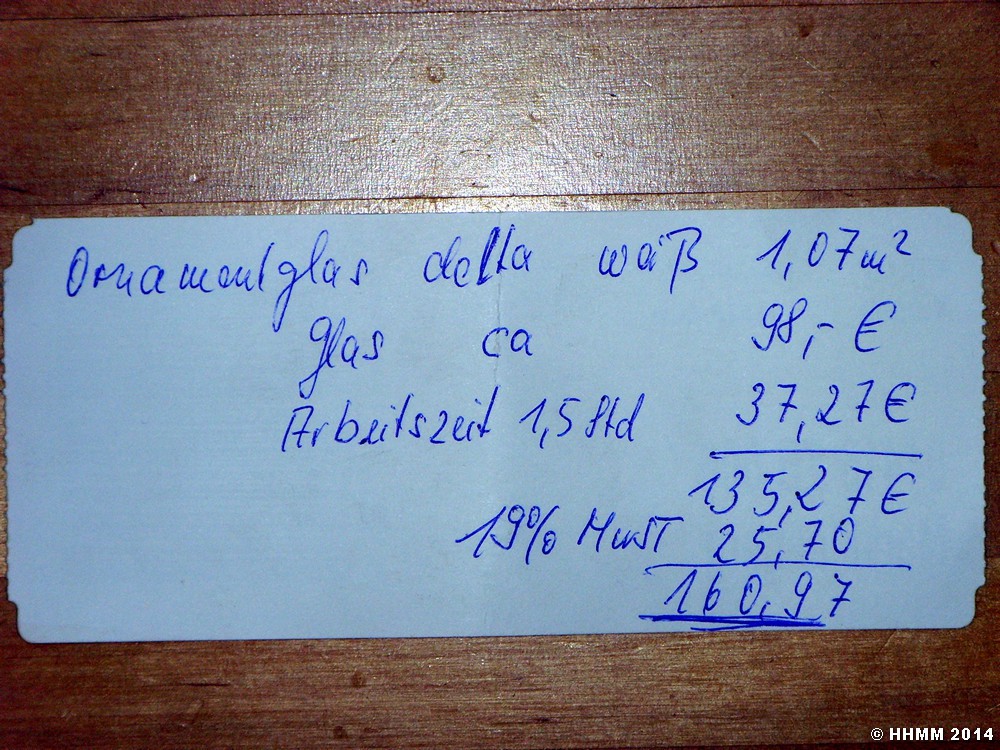 Ornamentglas delta waiß 1,07m²
glas ca 98,- €
Arbeitszeit 1,5 Std 37,27€
135,27€
19% MwST 25,70
160,97
© HHMM 2014